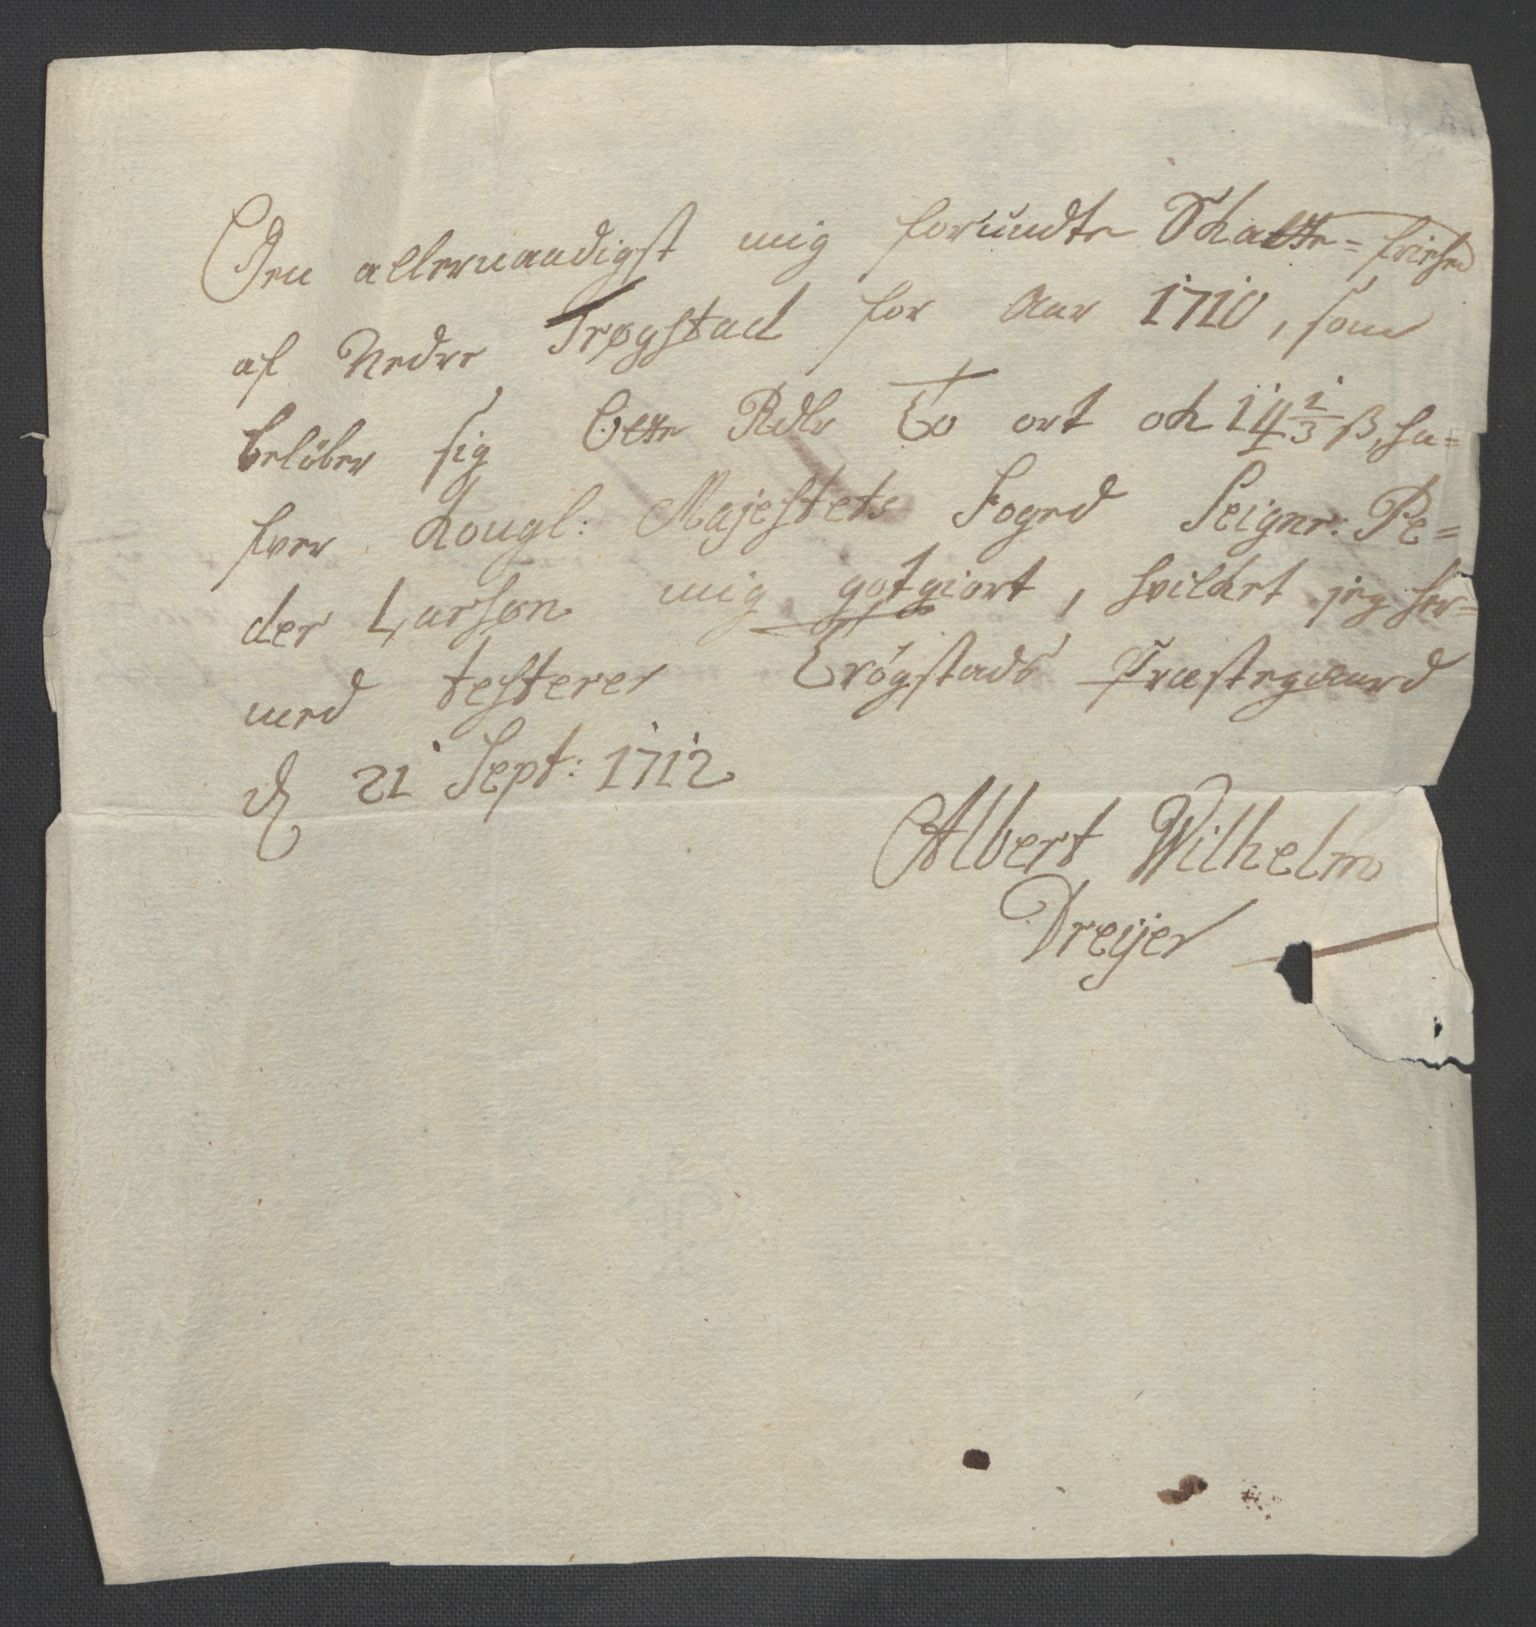 Den allernaadigst mig forundte Skatte-friehed
af Nedre Trøgstad for Aar 1710, som
beløber sig Otte Rdlr To ort och 14 1/3 ß, ha-
fver Kongl: Majestets Foged Seignr: Pe-
der Larsøn mig gotgiort, hvilket jeg her-
med testerer Trøgstads Præstegaard
d 21 Sept: 1712
Albert Wilhelm
Dreyer